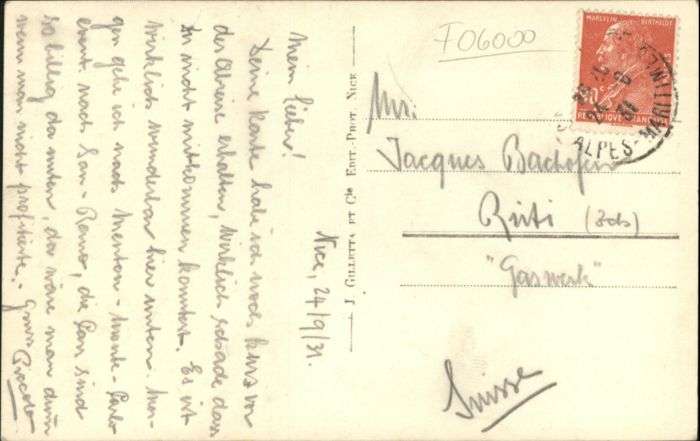 Nice, 24/9/31.
Mein lieber!
Deine Karte habe ich noch kurz vor
der Abreise erhalten, wirklich schade dass
Du nicht mitkommen konntest. Es ist
wirklich wunderbar hier unten. Mor-
gen gehe ich nach Menton-Monte-Carlo
event. nach San-Remo, die Cars sind
so billig da unten, da wäre man dumm
wenn man nicht profitierte.- Gruss
F06000
MARCELIN BERTHELOT
POSTES
50c
REPUBLIQUE FRANÇAISE
ALPES-MARITIMES
Mr.
Jacques Bachofen
Rüti (Zch)
"Gaswerk"
Suisse
J. GILLETTA ET Cie EDIT.-PHOT. NICE